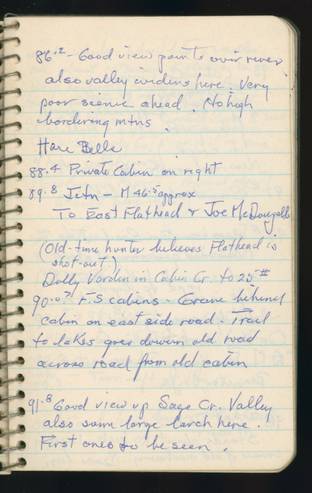 86.2 - Good view point over river
also valley widens here. Very
poor scenic ahead. No high
bordering mtns.
Hare Bells
88.4 Private Cabin on right
89.8 Jctn - M 46.5 approx
To East Flathead & Joe McDougall
(Old-time hunter believes Flathead is
shot-out)
Dolly Varden in Cabin Cr. to 25#
90.0 F.S cabins - Grave behind
cabin on east side road. Trail
to lakes goes down old road
across road from old cabin
91.8 Good view up Sage Cr. Valley
also some large larch here.
First ones to be seen.